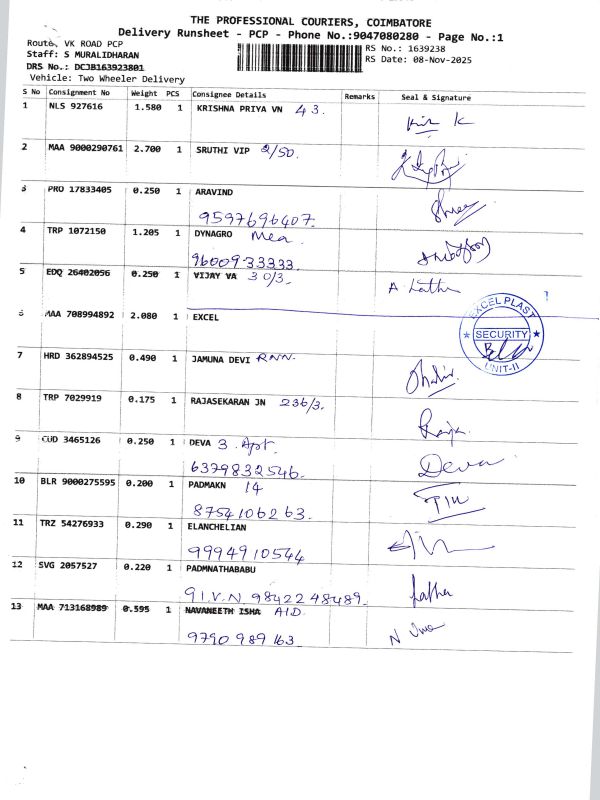 THE PROFESSIONAL COURIERS, COIMBATORE
Delivery Runsheet - PCP - Phone No.:9047080280 - Page No.:1
Route, VK ROAD PCP
Staff: S MURALIDHARAN
DRS No.: DCJB163923801
Vehicle: Two Wheeler Delivery
RS No.: 1639238
RS Date: 08-Nov-2025
S No Consignment No Weight PCS Consignee Details Remarks Seal & Signature
1 NLS 927616 1.580 1 KRISHNA PRIYA VN 43.
2 MAA 9000290761 2.700 1 SRUTHI VIP 2/50.
3 PRO 17833405 0.250 1 ARAVIND
9597696407.
4 TRP 1072150 1.205 1 DYNAGRO Mea
9600933333.
5 EDQ 26402056 0.250 1 VIJAY VA 30/3. A Latha
6 MAA 708994892 2.080 1 EXCEL
EXCEL PLAST
SECURITY
UNIT-II
7 HRD 362894525 0.490 1 JAMUNA DEVI RNN.
8 TRP 7029919 0.175 1 RAJASEKARAN JN 236/3.
9 CUD 3465126 0.250 1 DEVA 3. Apt. Deva
6379832546.
10 BLR 9000275595 0.200 1 PADMAKN 14
8754106263.
11 TRZ 54276933 0.290 1 ELANCHELIAN
9994910544
12 SVG 2057527 0.220 1 PADMNATHABABU
91.V.N 9842248489. Latha
13 MAA 713168989 0.595 1 NAVANEETH ISHA AID.
9790989163 N Uma